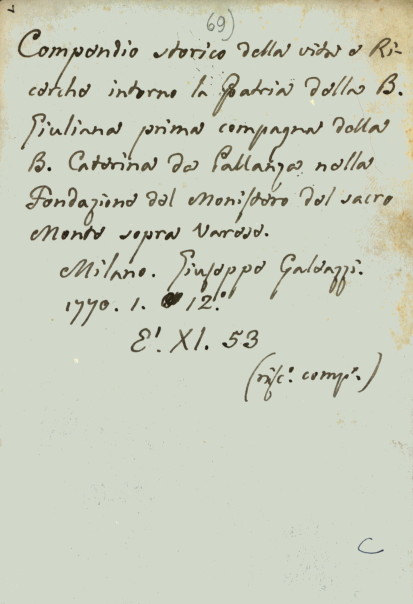 69)
Compendio storico della vita e Ri-
cerche intorno la Patria della B.
Giuliana prima compagna della
B. Caterina da Pallanza nella
Fondazione del Monistero del sacro
Monte sopra Varese.
Milano. Giuseppe Galeazzi.
1770. 1. 12.º
E'. XI. 53
(misc.ª comp.ª)
C